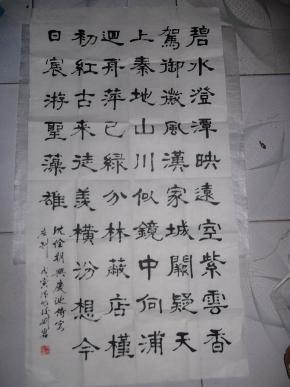 碧水澄潭映遠空紫雲香
駕御微風漢家城闕疑天
上秦地山川似鏡中向浦
迴舟萍已綠分林蔽店槿
初紅古來徒羨橫汾想今
日宸游聖藻雄
沈佺期興慶池侍宴
應制